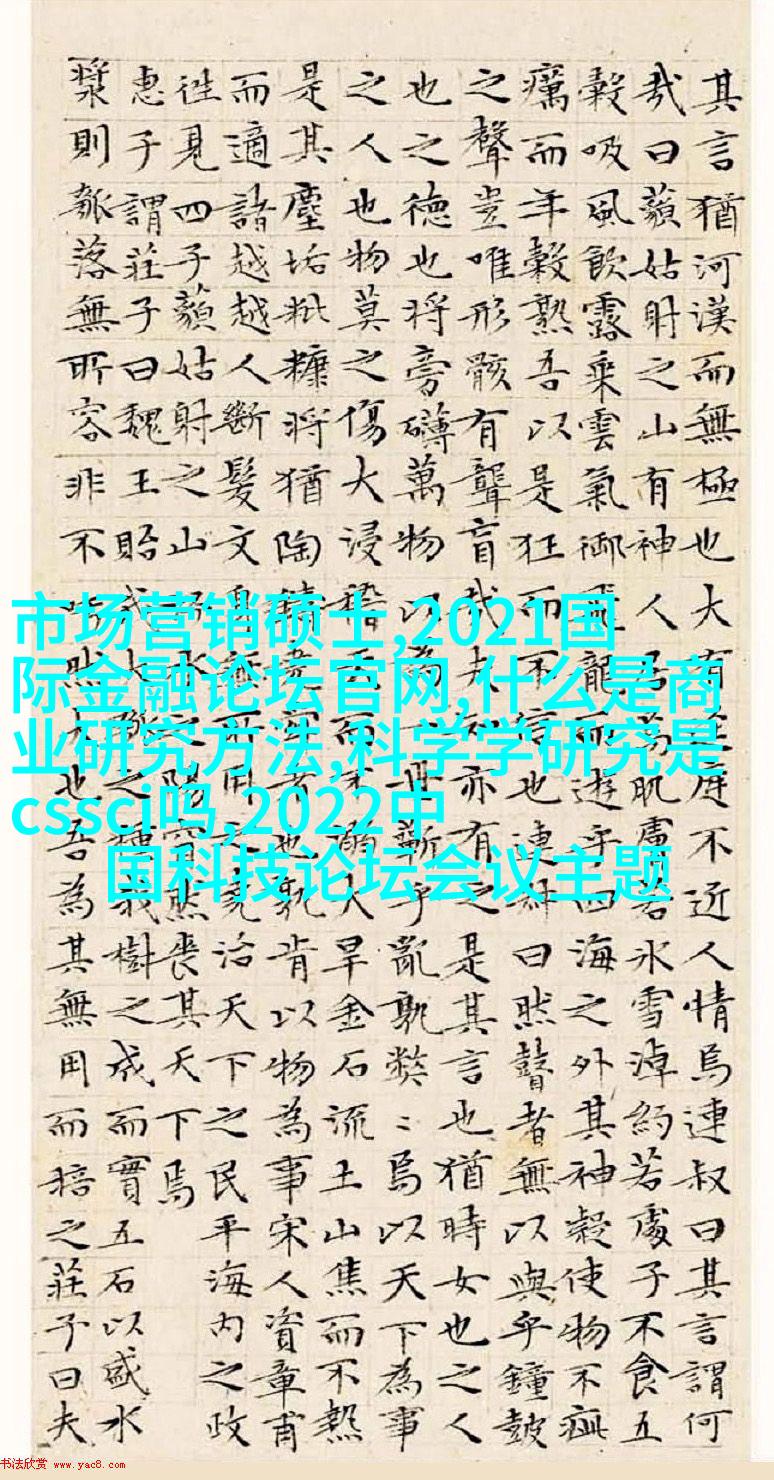 其言猶河漢而無極也大有庭不近人情焉連叔曰其言謂何
哉曰藐姑射之山有神人居焉肌膚若冰雪淖約若處子不食五
穀吸風飲露乘雲氣御飛龍而遊乎四海之外其神凝使物不疵
癘而年穀熟吾以是狂而不信也連叔曰然瞽者無以與乎鐘鼓
之聲豈唯形骸有聾盲哉夫知亦有之是其言也猶時女也之人
也之德也將旁礴萬物以為一丹蘄乎亂孰弊〻焉以天下為事
之人也物莫之傷大浸稽天而不溺大旱金石流土山焦而不熱
是其塵垢粃糠將猶陶鑄堯者也孰肯以物為事宋人資章甫
而適諸越越人斷髮文身無所用之堯治天下之民平海內之政
往見四子藐姑射之山水之陽窅然喪其天下焉
惠子謂莊子曰魏王貽我大瓠之種我樹之成而實五石以盛水
漿則瓠落無所容非不然大也吾為其無用而掊之莊子曰夫
市场营销硕士,2021国
际金融论坛官网,什么是商
业研究方法,科学学研究是
cssci吗,2022中
国科技论坛会议主题
书法欣赏 www.yac8.com